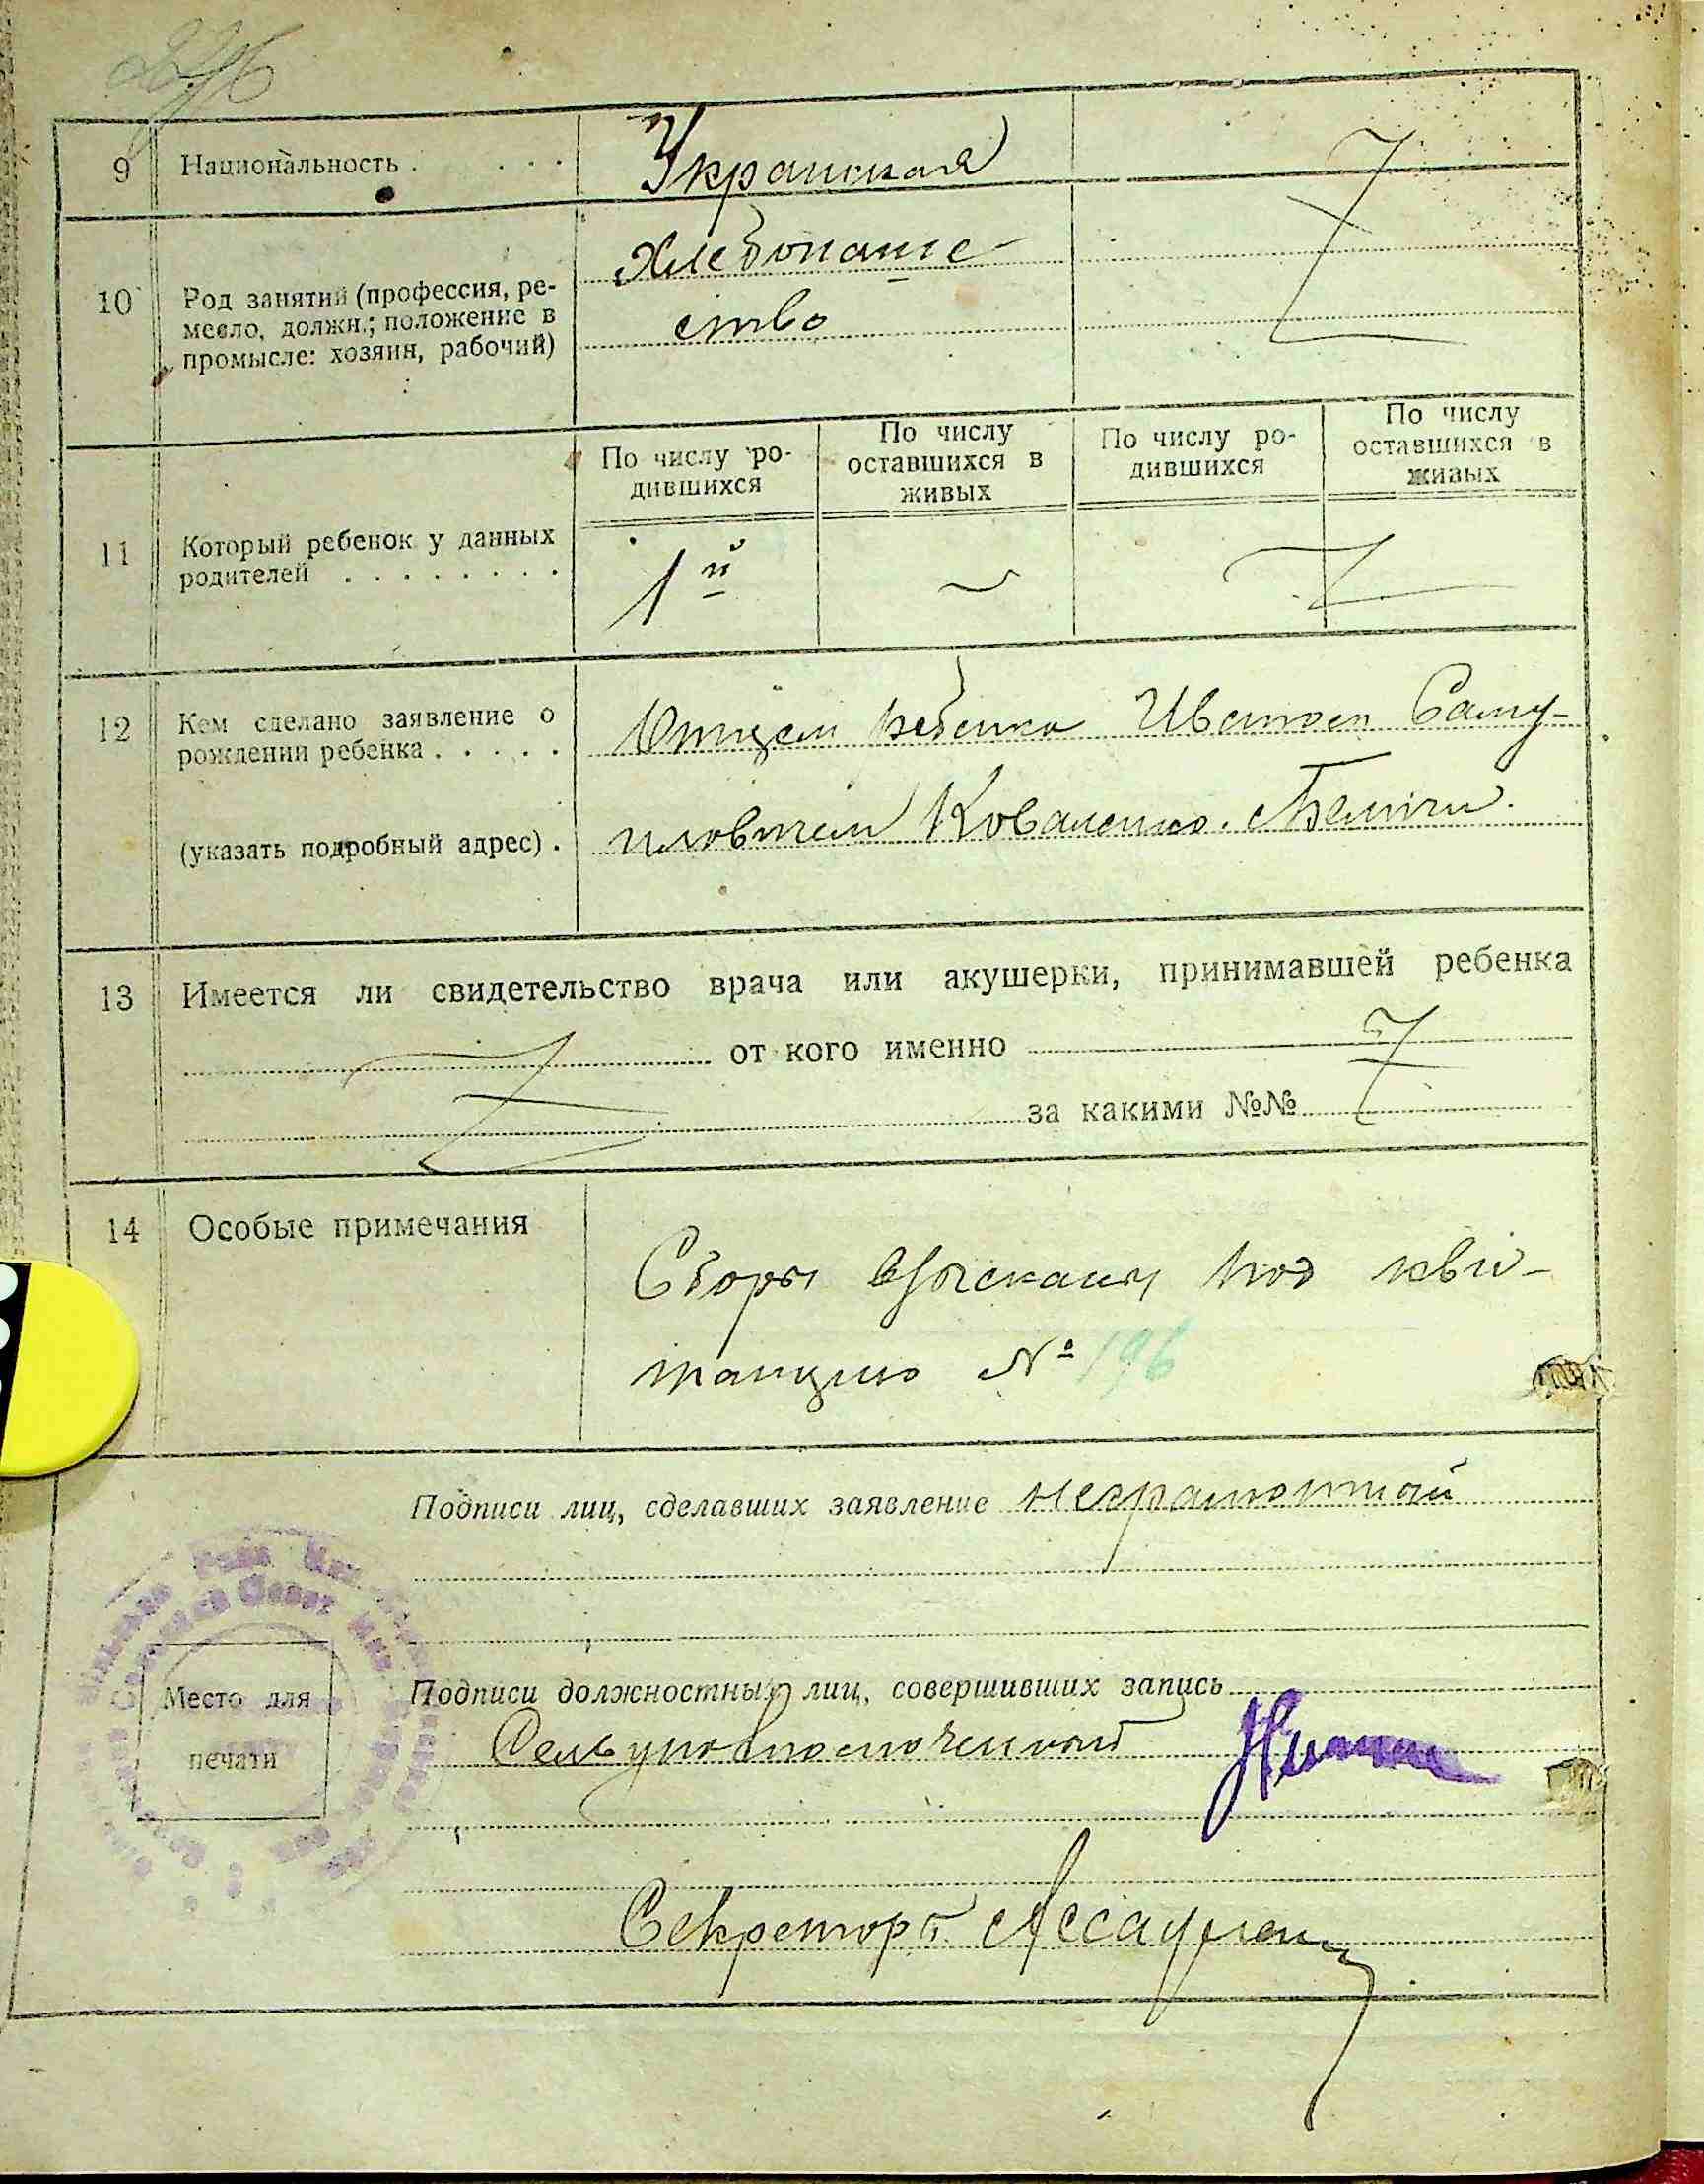 9 Национальность . . . . Украинская
10 Род занятий (профессия, ре-
месло, должн.; положение в
промысле: хозяин, рабочий)
Хлебопаше-
ство
По числу ро-
дившихся
По числу
оставшихся в
живых
По числу ро-
дившихся
По числу
оставшихся в
живых
11 Который ребенок у данных
родителей . . . . . . . .
1й
12 Кем сделано заявление о
рождении ребенка . . . . .
(указать подробный адрес) .
Отцем ребенка Иваном Саму-
иловичем Коваленко.
13 Имеется ли свидетельство врача или акушерки, принимавшей ребенка
от кого именно
за какими №№
14 Особые примечания
Сборы взысканы под кви-
танцию № 196
Подписи лиц, сделавших заявление неграмотный
Место для
печати
Подписи должностных лиц, совершивших запись
Сельуполномоченный
Секретарь